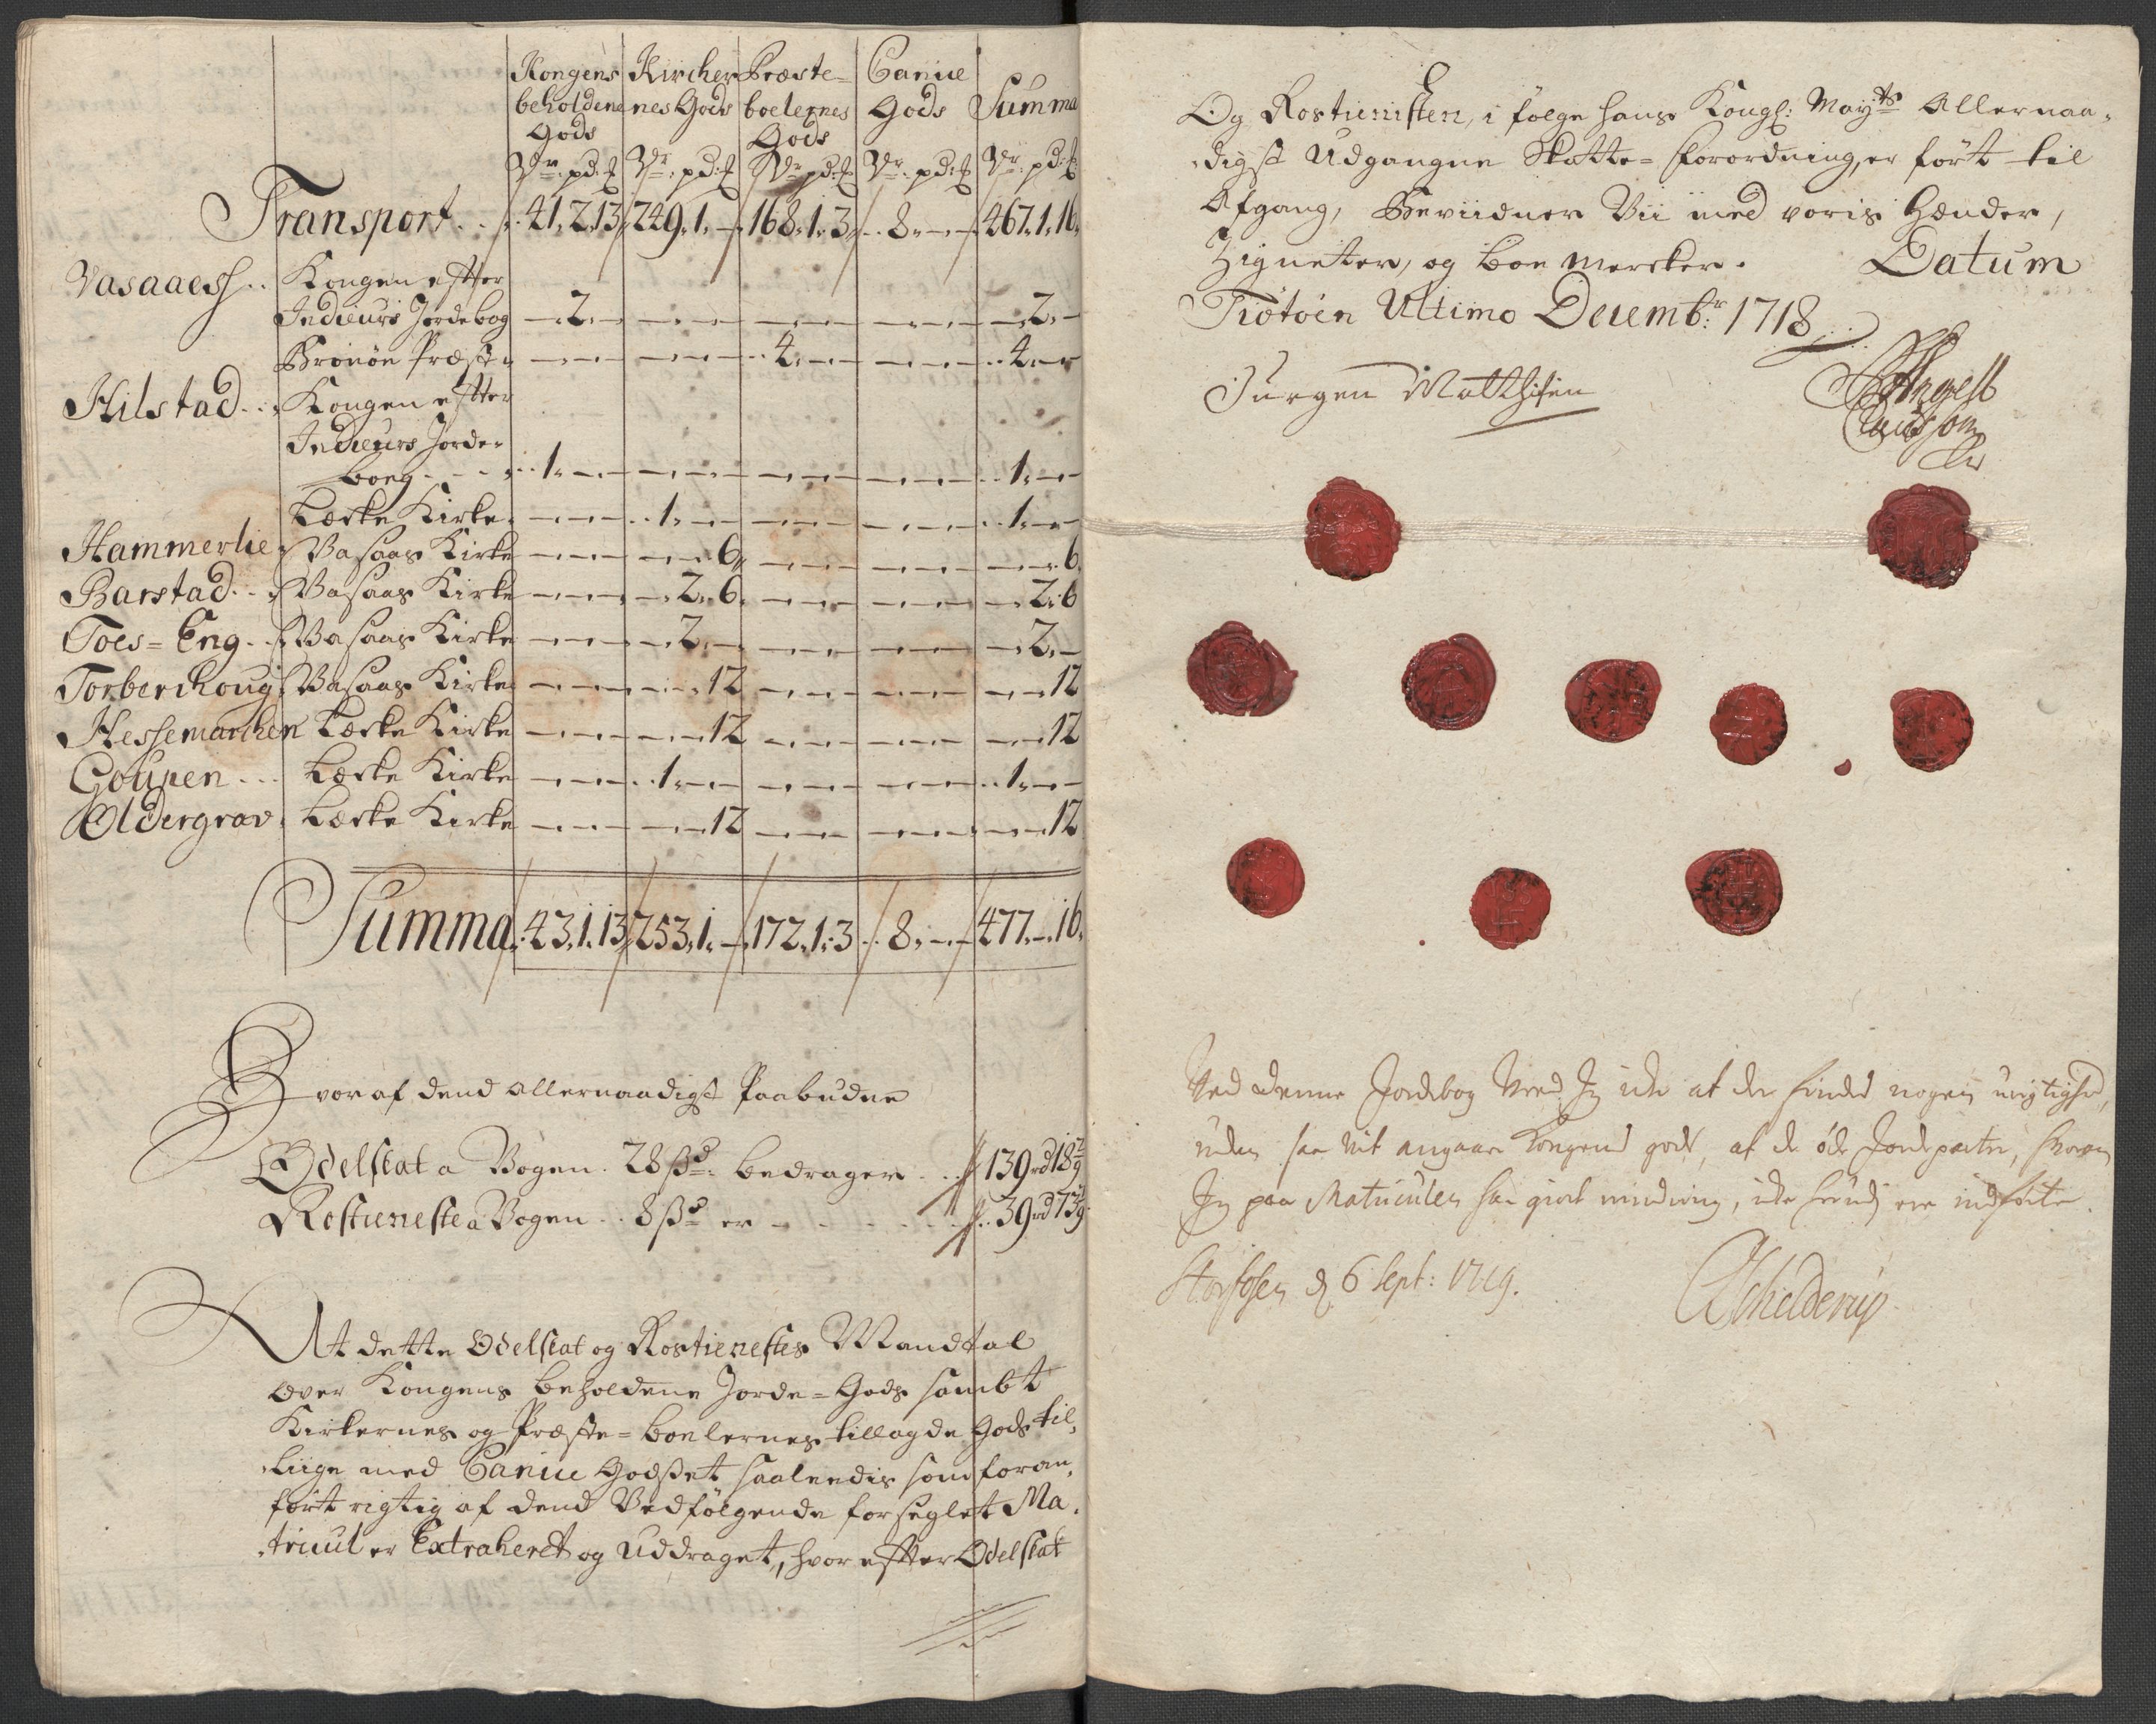 Kongens Kircher Præste- Canice
beholdene nes Gods boelernes Gods Summa
Gods Gods
Vr. pd: Vr. pd: Vr. pd: Vr. pd: Vr. pd:
Transport . . 41. 2. 13 249. 1. — 168. 1. 3 8. — — 467. 1. 16
Vasaaesh . . Kongen effter
Indicurs Jordebog — 2. — — — — — — — — — — — 2. —
Brønøe Præst — — — — — — 4. — — — — — 4. — —
Hilstad . . Kongen effter
Indicurs Jorde-
boeg . . . 1. — — — — — — — — — — — 1. — —
Læcke Kircke — — — 1. — — — — — — — — 1. — —
Hammerlie Vasaas Kircke — — — — — 6 — — — — — — — — 6
Barstad . . Vasaas Kircke — — — — 2. 6 — — — — — — — 2. 6
Toes=Eng . . Vasaas Kircke — — — — 2. — — — — — — — — 2. —
Torberchoug Vasaas Kircke — — — — — 12 — — — — — — — — 12
Hessemarchen Læcke Kircke — — — — — 12 — — — — — — — — 12
Goupen . . . Læcke Kircke — — — 1. — — — — — — — — 1. — —
Oldergrav Læcke Kircke — — — — — 12 — — — — — — — — 12
Summa . 43. 1. 13 253. 1. — 172. 1. 3 8. — — 477. — 16
Hvor af dend allernaadigst Paabudne
Odelscat a Vogen . 28 ß bedrager . . 139 rd 18
Rostieneste a Vogen . . 8 ß er . . . 39 rd 73
At dette Odelscat og Rostienestes Mandtal
over Kongens beholdene Jorde=Gods sambt
Kirkernes og Præste=boelernes tillagde Gods til,
liige med Canice Godset saaleedis som foran,
ført rigtig af dend Vedfølgende forseglet Ma,
tricul er Extraheret og Uddraget, hvor effter Odelscat
Og Rostienisten, i følge hans Kongl: Mayts Allernaa,
digst Udgangne Skatte=forordning, er ført til
Afgang, Beviidner Vii med voris Hænder,
Zigneter, og boe Mercker. Datum
Tiøtøen Ultimo Decembr: 1718
Jurgen Matthisen
Ved denne Jordebog Veed Jeg icke at der findes nogen urigtighed,
uden saa vit angaar Kongens gods, af de øde Jordeparter, hvorom
Jeg paa Matriculen har giort erindring, icke herudj ere indførte.
Storfosen d 6 Sept: 1719.
Schelderup